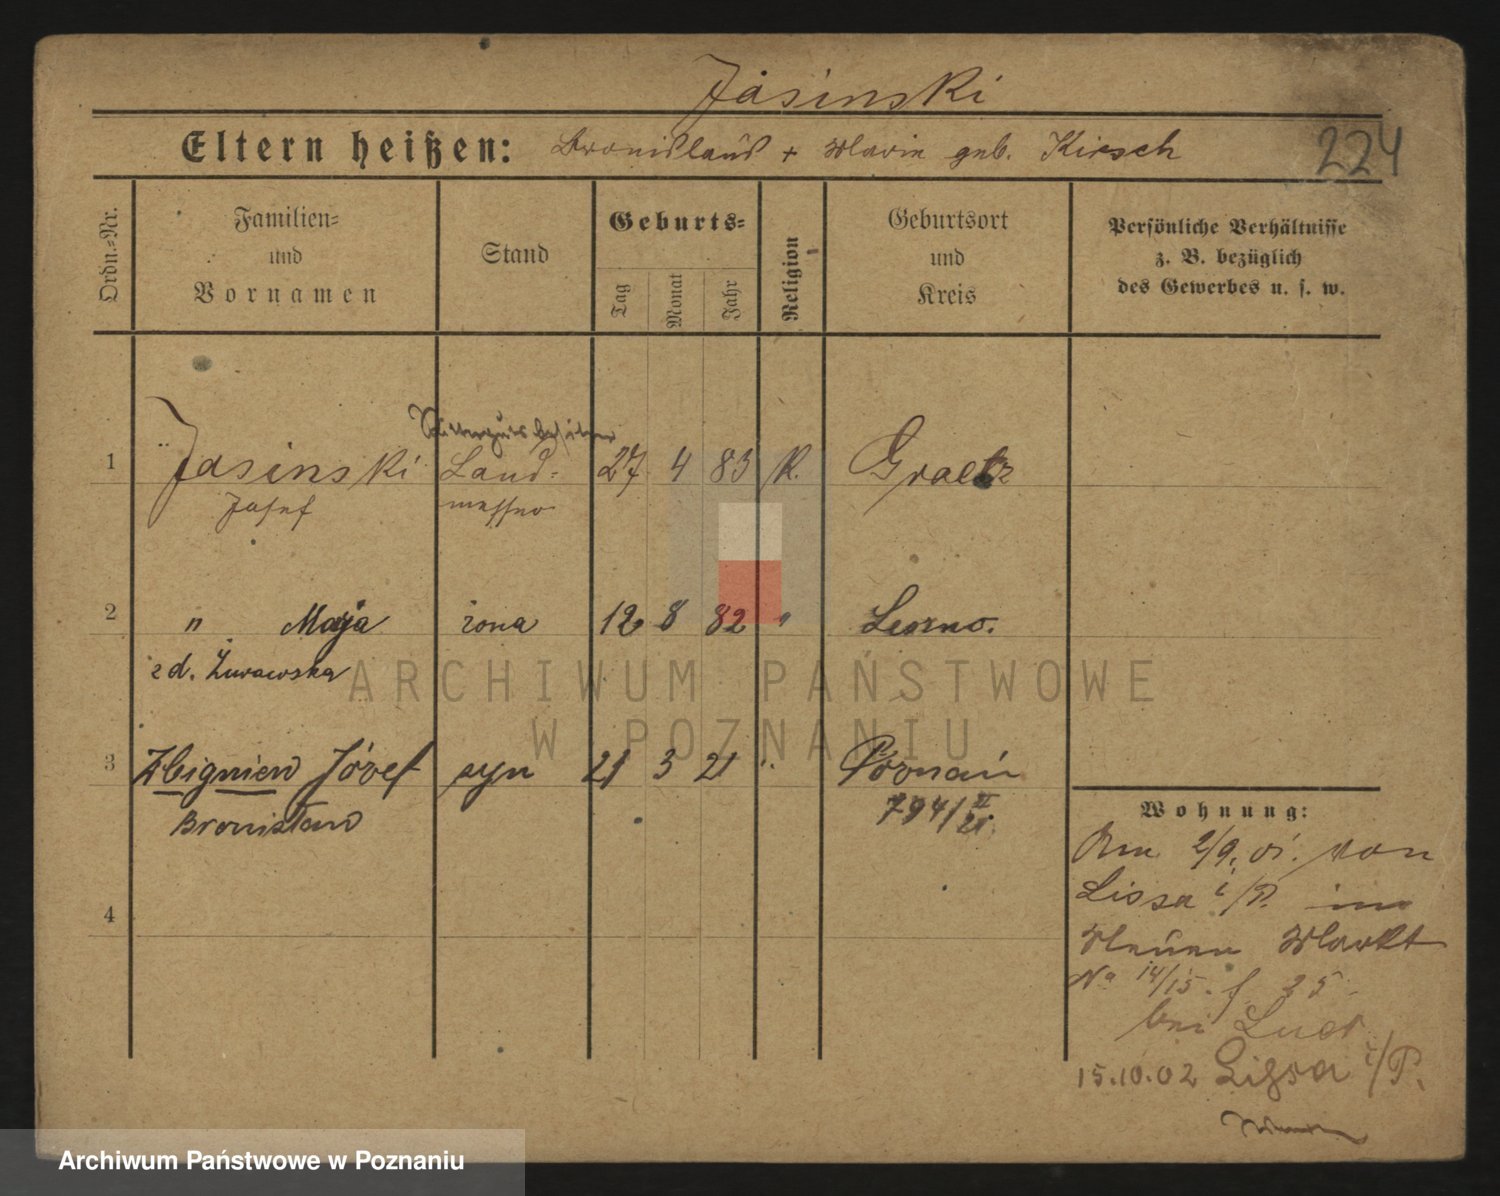 Jasinski
Eltern heißen: Bronislaus + Marie geb. Kirsch
224
Ordn.-Nr.
Familien-
und
Vornamen
Stand
Geburts-
Tag
Monat
Jahr
Religion
Geburtsort
und
Kreis
Persönliche Verhältnisse
z. B. bezüglich
des Gewerbes u. s. w.
Rittergutsbesitzer
1 Jasinski Land- 27 4 83 K. Graetz
Josef messer
2 " Maja żona 12 8 82 " Leszno.
z d. Żurawska
3 Zbigniew Józef syn 21 3 21 " Poznań
Bronisław 794/II 21.
4
Wohnung:
Am 2/9. 01. von
Lissa i/P. im
Neuen Markt
No 14/15. f. 25.
bei
15.10.02 Lissa i/P.
ARCHIWUM PAŃSTWOWE
W POZNANIU
Archiwum Państwowe w Poznaniu